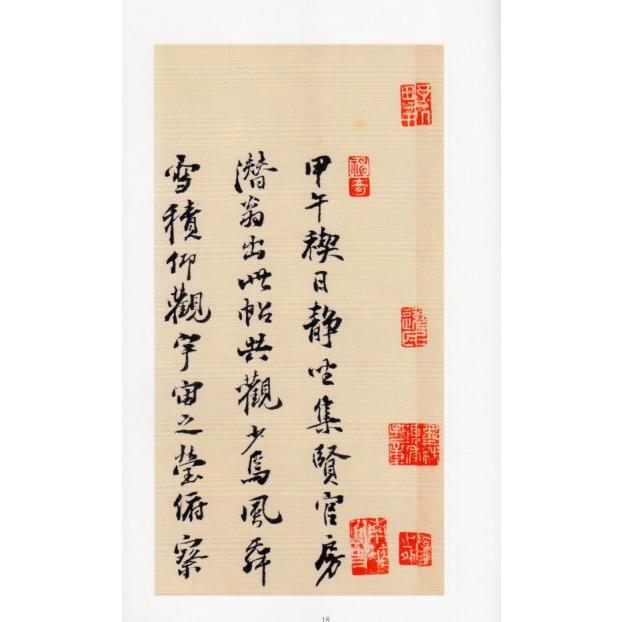 甲午禊日静坐集賢官房
潜翁出此帖共觀少焉風舞
雪積仰觀宇宙之瑩俯察
18